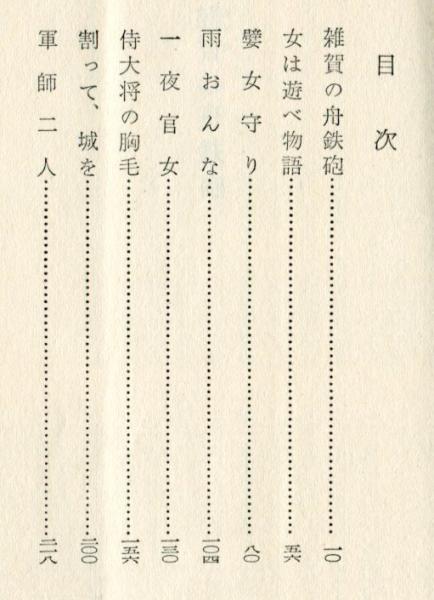 目次
雑賀の舟鉄砲……一〇
女は遊べ物語……五六
嬖女守り……八〇
雨おんな……一〇四
一夜官女……一三〇
侍大将の胸毛……一五六
割って、城を……二〇〇
軍師二人……二一八